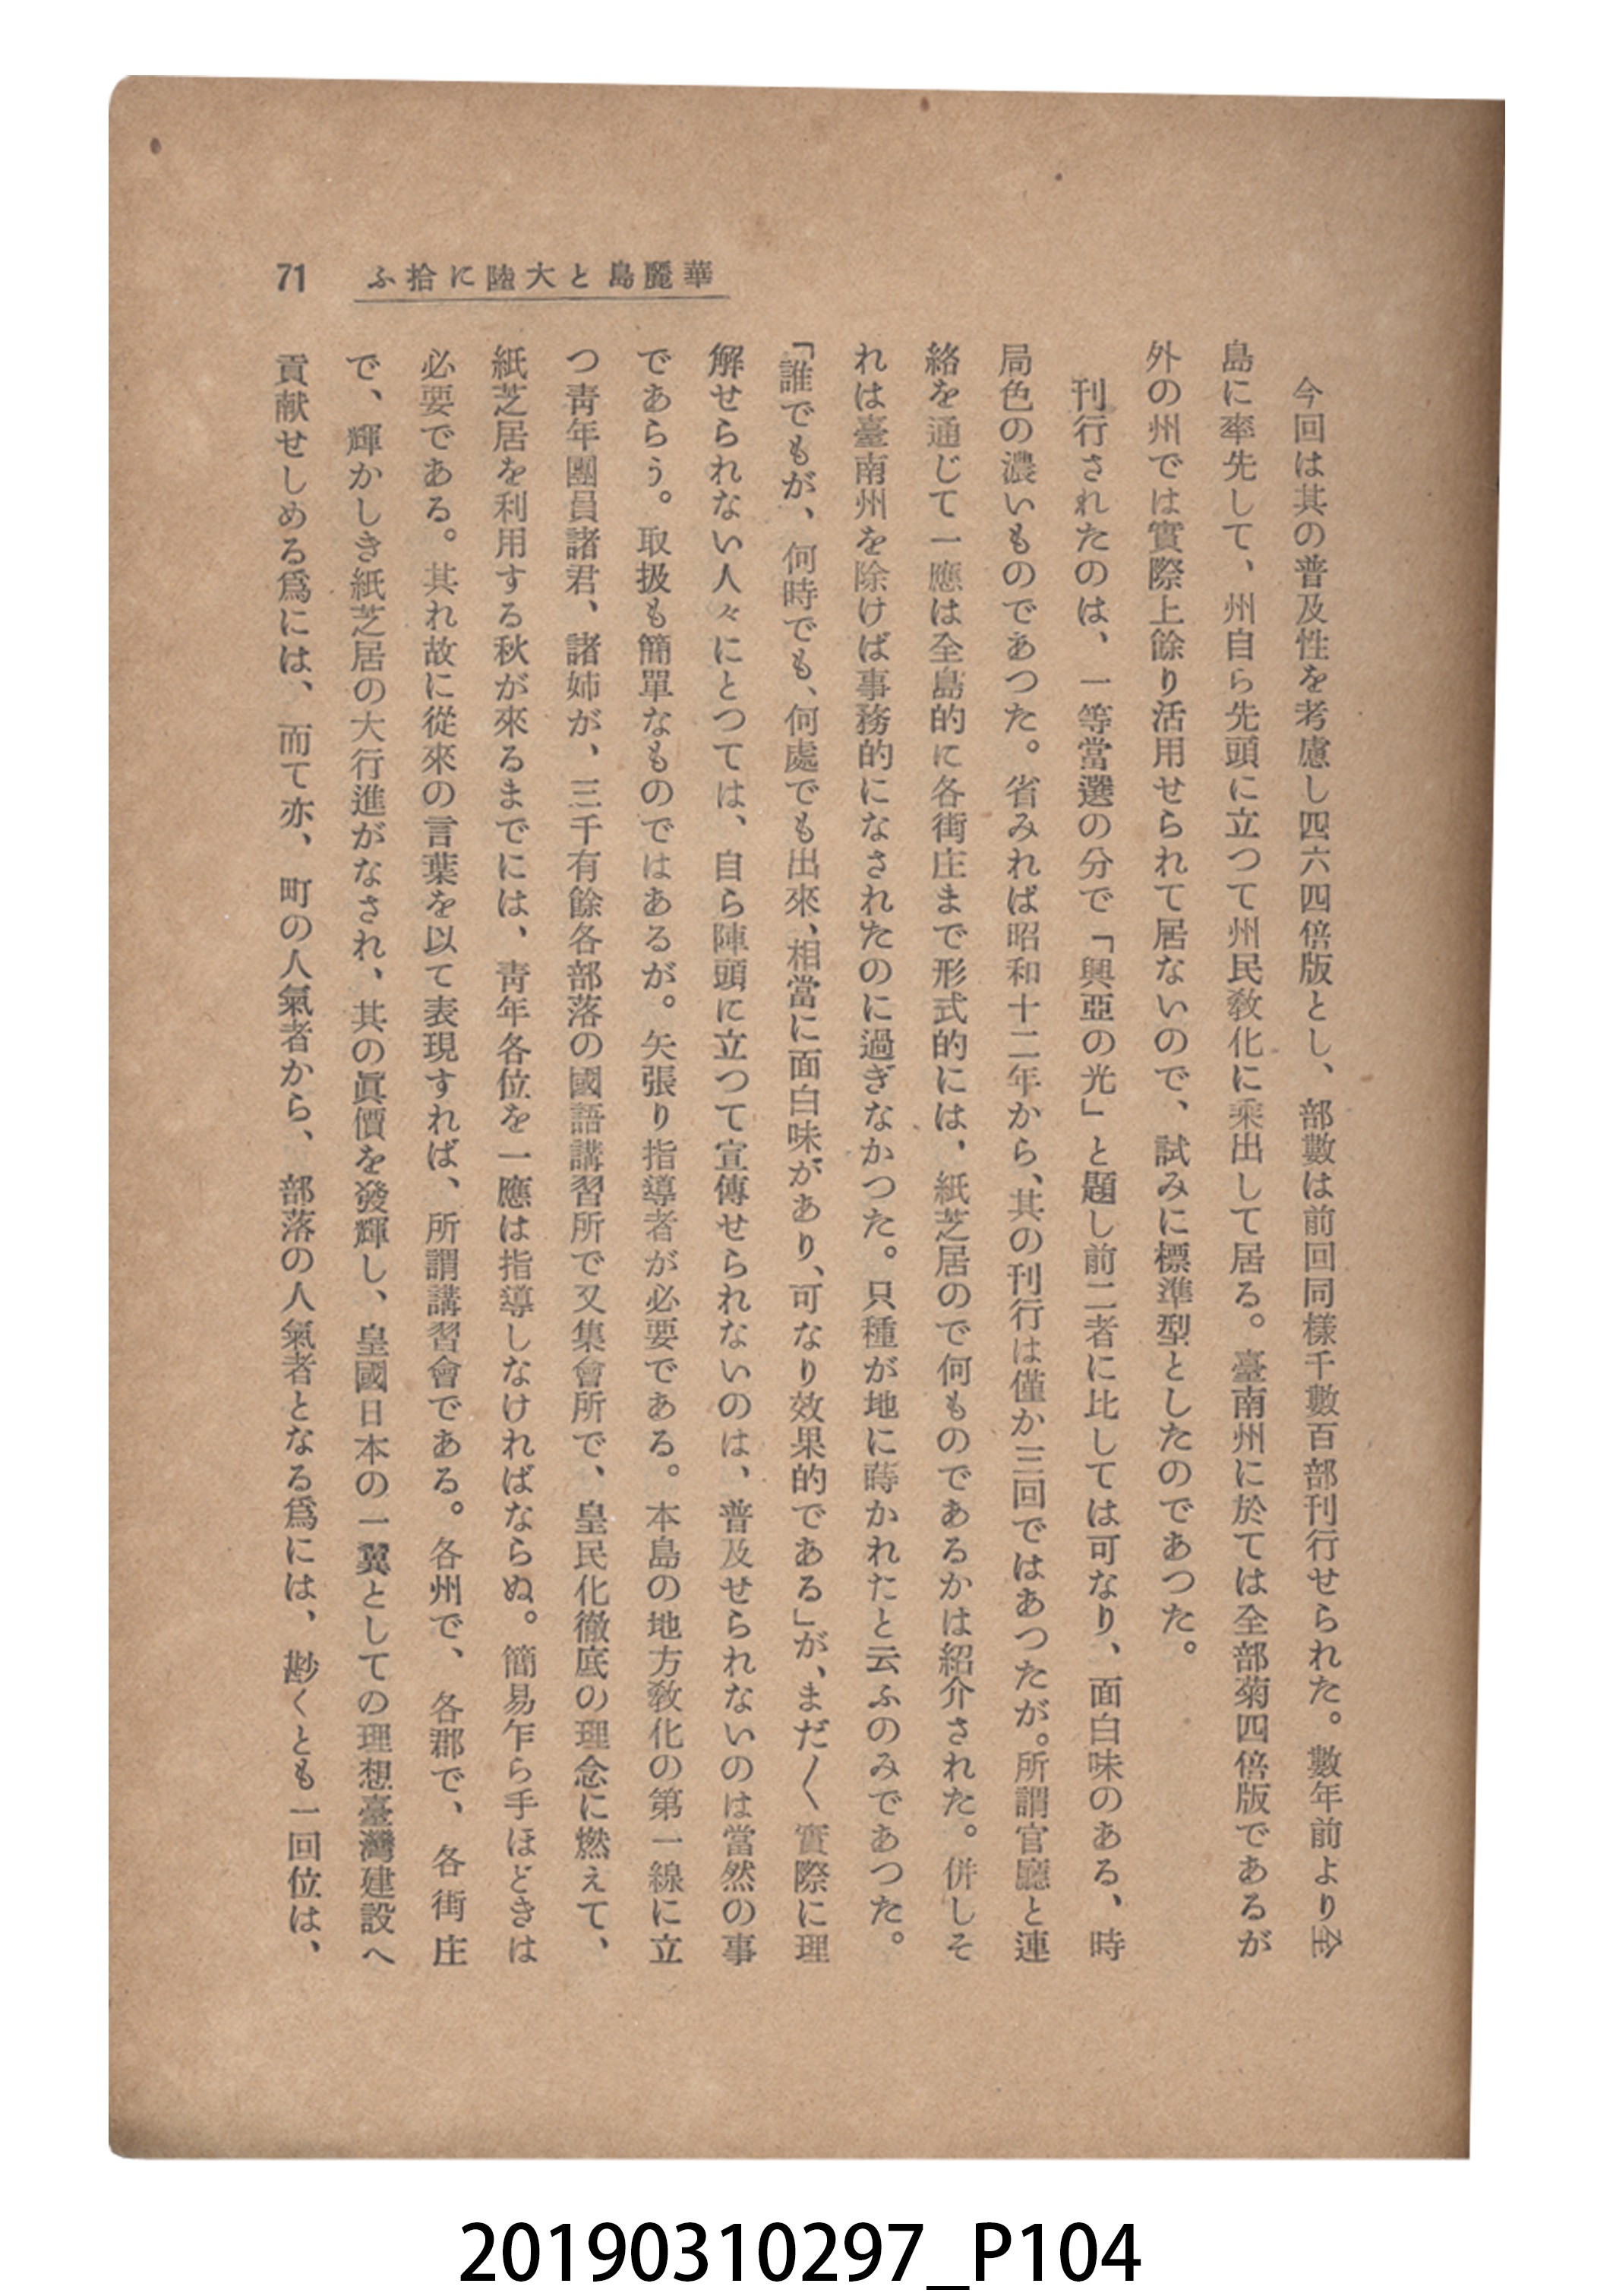 華麗島と大陸に拾ふ
71
今回は其の普及性を考慮し四六四倍版とし、部數は前回同樣千數百部刊行せられた。數年前より全
島に率先して、州自ら先頭に立つて州民敎化に乘出して居る。臺南州に於ては全部菊四倍版であるが
外の州では實際上餘り活用せられて居ないので、試みに標準型としたのであつた。
刊行されたのは、一等當選の分で「興亞の光」と題し前二者に比しては可なり、面白味のある、時
局色の濃いものであつた。省みれば昭和十二年から、其の刊行は僅か三回ではあつたが。所謂官廳と連
絡を通じて一應は全島的に各街庄まで形式的には、紙芝居ので何ものであるかは紹介された。併しそ
れは臺南州を除けば事務的になされたのに過ぎなかつた。只種が地に蒔かれたと云ふのみであつた。
「誰でもが、何時でも、何處でも出來、相當に面白味があり、可なり效果的である」が、まだ〱實際に理
解せられない人々にとつては、自ら陣頭に立つて宣傳せられないのは、普及せられないのは當然の事
であらう。取扱も簡單なものではあるが。矢張り指導者が必要である。本島の地方敎化の第一線に立
つ靑年團員諸君、諸姉が、三千有餘各部落の國語講習所で又集會所で、皇民化徹底の理念に燃えて、
紙芝居を利用する秋が來るまでには、靑年各位を一應は指導しなければならぬ。簡易乍ら手ほどきは
必要である。其れ故に從來の言葉を以て表現すれば、所謂講習會である。各州で、各郡で、各街庄
で、輝かしき紙芝居の大行進がなされ、其の眞價を發輝し、皇國日本の一翼としての理想臺灣建設へ
貢献せしめる爲には、而て亦、町の人氣者から、部落の人氣者となる爲には、尠くとも一回位は、
20190310297_P104